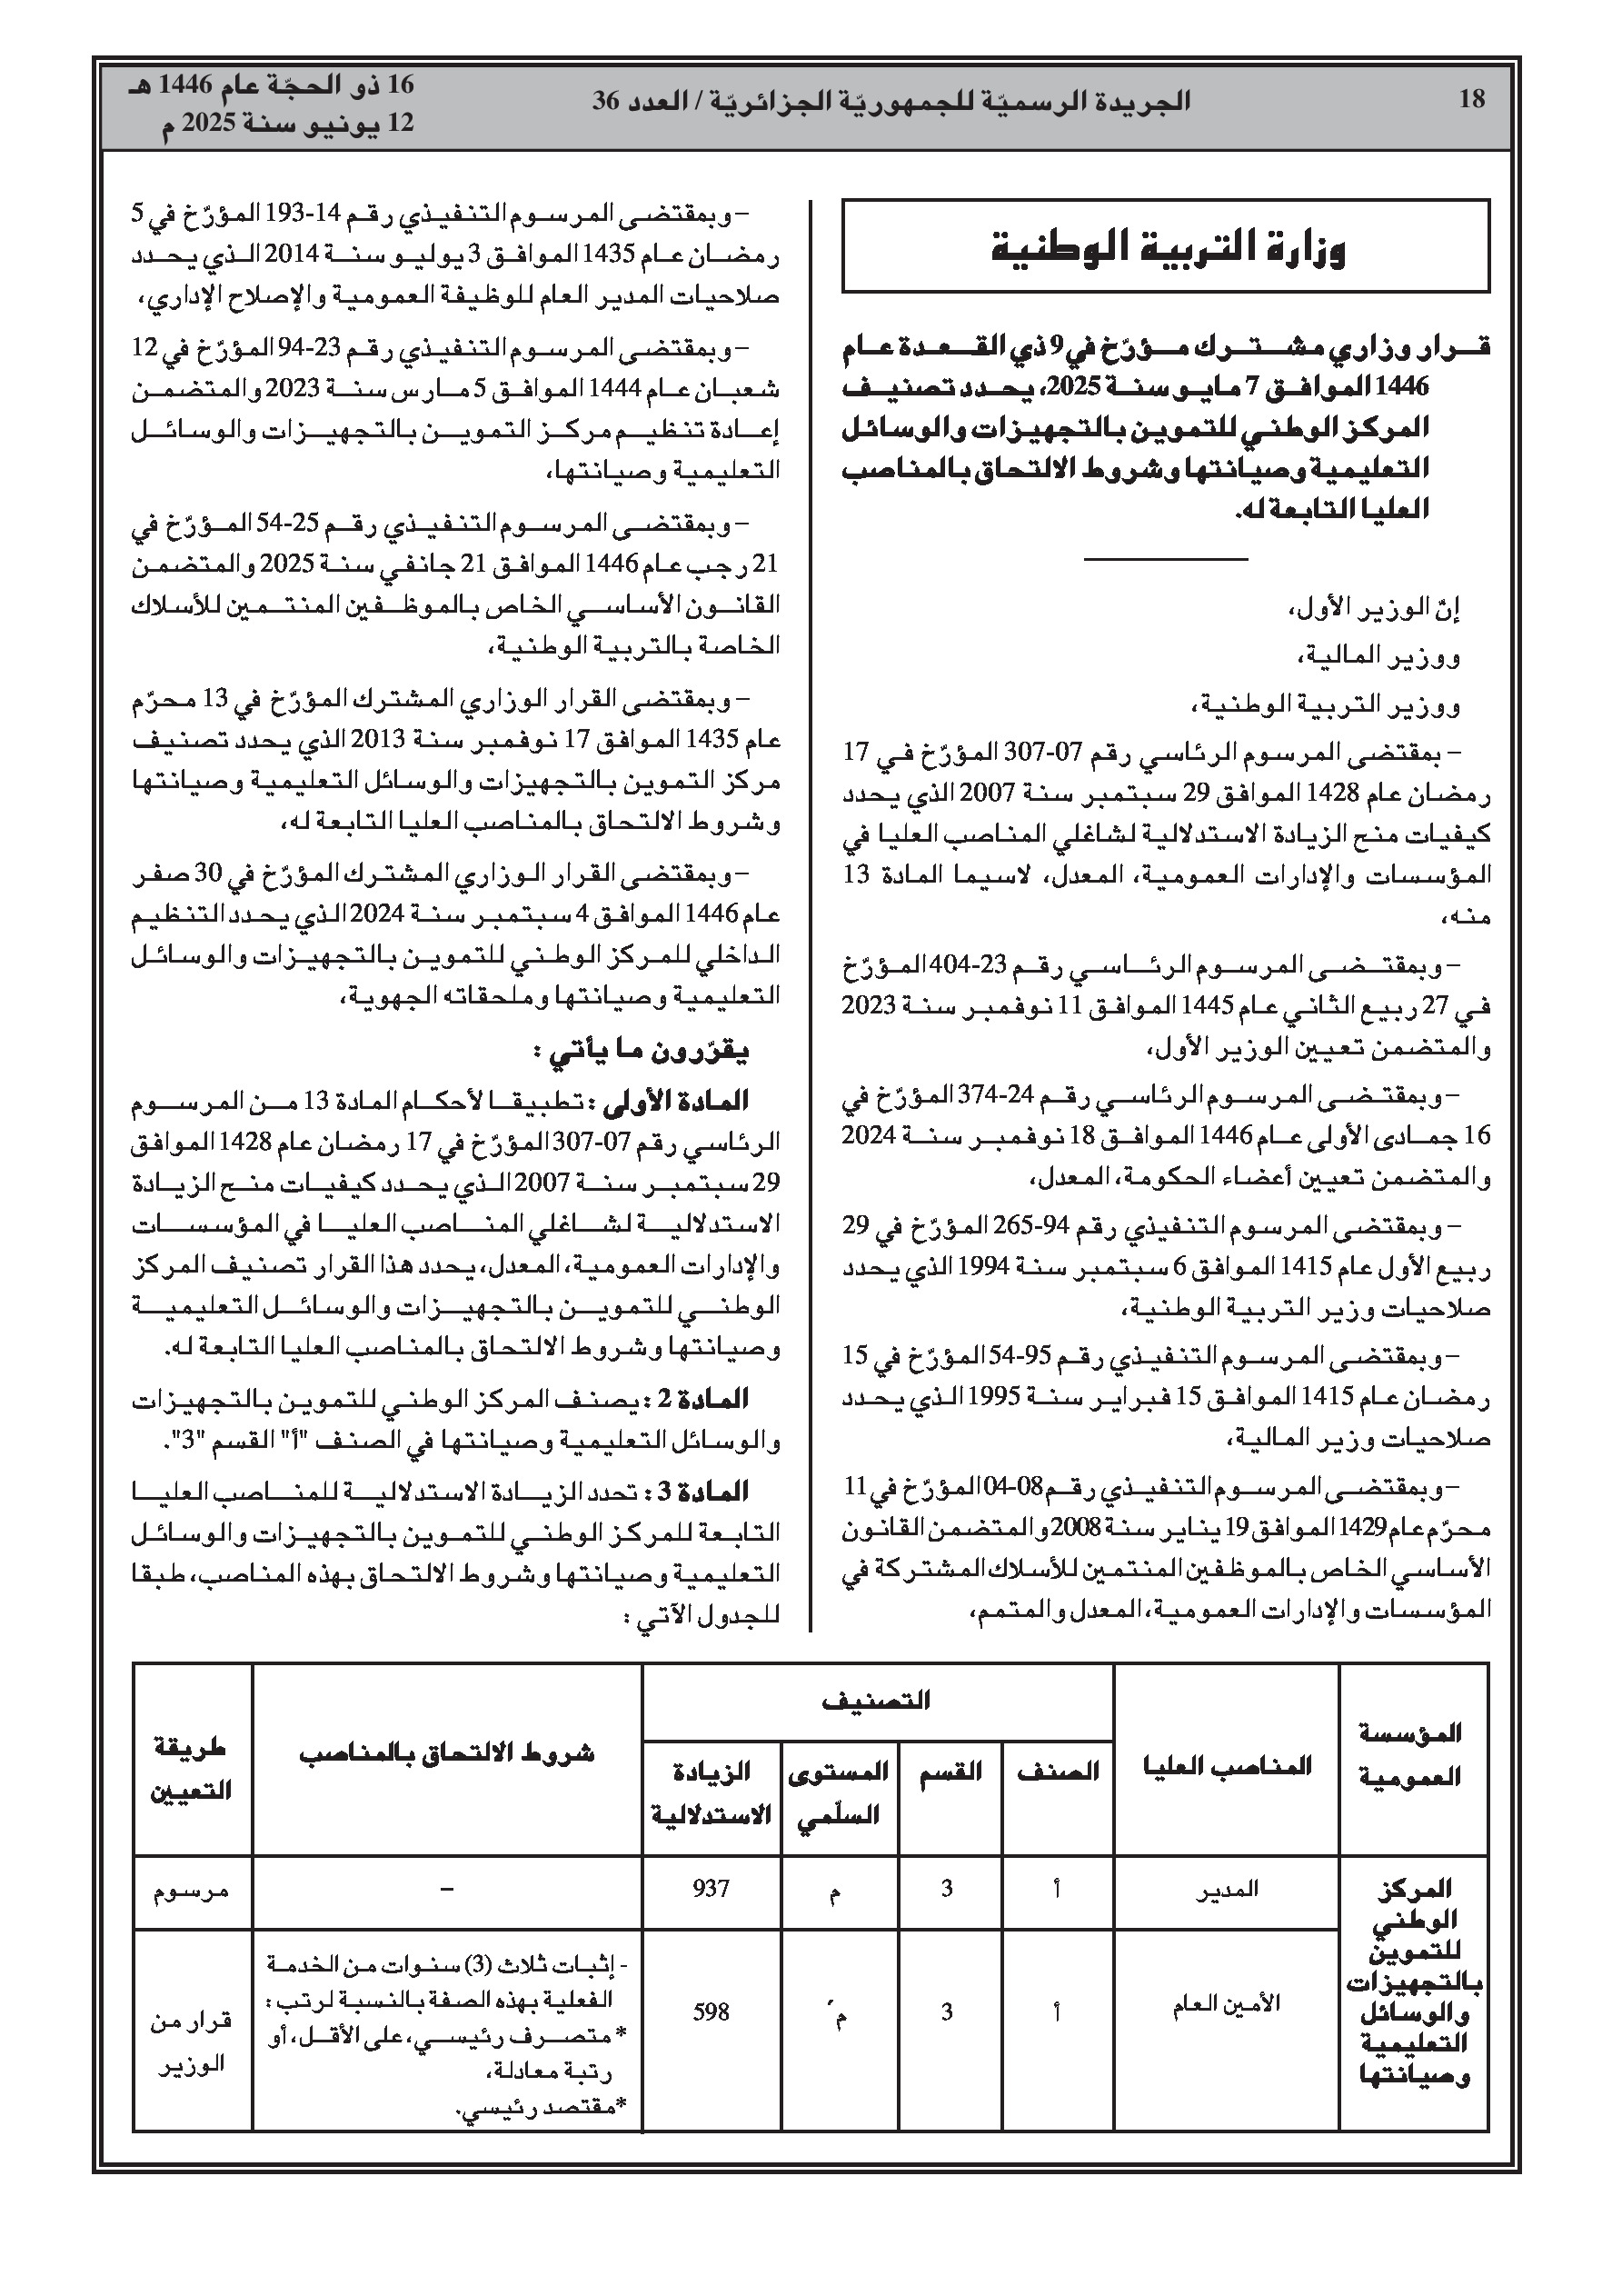 18
الجريدة الرسميّة للجمهوريّة الجزائريّة / العدد 36
16 ذو الحجّة عام 1446 هـ
12 يونيو سنة 2025 م
وزارة التربية الوطنية
قـرار وزاري مشـتـرك مـؤرّخ في 9 ذي القـعـدة عـام
1446 الموافـق 7 مايـو سنـة 2025، يحدد تصنيـف
المركز الوطني للتموين بالتجهيزات والوسائل
التعليمية وصيانتها وشروط الالتحاق بالمناصب
العليا التابعة له.
إنّ الوزير الأول،
ووزير المالية،
ووزير التربية الوطنية،
– بمقتضى المرسوم الرئاسي رقم 07-307 المؤرّخ فـي 17
رمضان عام 1428 الموافق 29 سبتمبر سنة 2007 الذي يحدد
كيفيات منح الزيادة الاستدلالية لشاغلي المناصب العليا في
المؤسسات والإدارات العمومية، المعدل، لاسيما المادة 13
منه،
– وبمقتـضـى المرسوم الرئـاسـي رقـم 23-404 المؤرّخ
فـي 27 ربيـع الثاني عـام 1445 الموافـق 11 نوفـمبـر سنـة 2023
والمتضمن تعيين الوزير الأول،
– وبمقتـضـى المرسـوم الرئـاسـي رقـم 24-374 المؤرّخ في
16 جمـادى الأولى عـام 1446 الموافـق 18 نوفـمبـر سنـة 2024
والمتضمن تعيين أعضاء الحكومة، المعدل،
– وبمقتضى المرسوم التنفيذي رقم 94-265 المؤرّخ في 29
ربيع الأول عام 1415 الموافق 6 سبتمبر سنة 1994 الذي يحدد
صلاحيات وزير التربية الوطنية،
– وبمقتضى المرسوم التنفيذي رقـم 95-54 المؤرّخ في 15
رمضان عام 1415 الموافق 15 فبراير سنة 1995 الذي يحدد
صلاحيات وزير المالية،
– وبمقتضـى المرسـوم التنفيـذي رقـم 08-04 المؤرّخ في 11
محرّم عام 1429 الموافق 19 يناير سنة 2008 والمتضمن القانون
الأساسي الخاص بالموظفين المنتمين للأسلاك المشتركة في
المؤسسات والإدارات العمومية، المعدل والمتمم،
– وبمقتضـى المرسوم التنفيـذي رقـم 14-193 المؤرّخ في 5
رمضـان عـام 1435 الموافـق 3 يوليـو سنـة 2014 الـذي يحـدد
صلاحيات المدير العام للوظيفة العمومية والإصلاح الإداري،
– وبمقتضى المرسوم التنفيذي رقـم 23-94 المؤرّخ في 12
شعبـان عـام 1444 الموافـق 5 مـارس سنـة 2023 والمتضمـن
إعـادة تنظـيم مركـز التمويـن بالتجهيـزات والوسائـل
التعليمية وصيانتها،
– وبمقتضـى المرسـوم التنفيـذي رقـم 25-54 المـؤرّخ في
21 رجب عـام 1446 الموافـق 21 جانفـي سنـة 2025 والمتضمـن
القانـون الأساسـي الخاص بالموظـفين المنتـمين للأسلاك
الخاصة بالتربية الوطنية،
– وبمقتضى القرار الوزاري المشترك المؤرّخ في 13 محرّم
عام 1435 الموافق 17 نوفمبر سنة 2013 الذي يحدد تصنيف
مركز التموين بالتجهيزات والوسائل التعليمية وصيانتها
وشروط الالتحاق بالمناصب العليا التابعة له،
– وبمقتضى القرار الوزاري المشترك المؤرّخ في 30 صفر
عـام 1446 الموافـق 4 سبتمبـر سنـة 2024 الـذي يحـدد التنظيم
الداخلي للمركز الوطني للتموين بالتجهيزات والوسائل
التعليمية وصيانتها وملحقاته الجهوية،
يقرّرون ما يأتي :
المادة الأولى : تطبيقـا لأحكـام المادة 13 مـن المرسـوم
الرئاسي رقم 07-307 المؤرّخ في 17 رمضان عام 1428 الموافق
29 سبتمبـر سنـة 2007 الـذي يحـدد كيفيـات منـح الزيـادة
الاستدلاليـة لشـاغلي المنـاصب العليـا في المؤسسـات
والإدارات العمومية، المعدل، يحدد هذا القرار تصنيف المركز
الوطنـي للتمويـن بالتجهيـزات والوسائـل التعليميـة
وصيانتها وشروط الالتحاق بالمناصب العليا التابعة له.
المادة 2 : يصنف المركز الوطني للتموين بالتجهيزات
والوسائل التعليمية وصيانتها في الصنف "أ" القسم "3".
المادة 3 : تحدد الزيـادة الاستدلاليـة للمنـاصب العليـا
التابعة للمركز الوطني للتموين بالتجهيزات والوسائل
التعليمية وصيانتها وشروط الالتحاق بهذه المناصب، طبقا
للجدول الآتي :
المؤسسة
العمومية
المناصب العليا
التصنيف
الصنف
القسم
المستوى
السلّمي
الزيادة
الاستدلالية
شروط الالتحاق بالمناصب
طريقة
التعيين
المركز
الوطني
للتموين
بالتجهيزات
والوسائل
التعليمية
وصيانتها
المدير
أ
3
م
937
–
مرسوم
الأمين العام
أ
3
م´
598
- إثبـات ثلاث (3) سنوات من الخدمة
الفعلية بهذه الصفة بالنسبة لرتب :
* متصـرف رئيسـي، على الأقـل، أو
رتبة معادلة،
*مقتصد رئيسي.
قرار من
الوزير